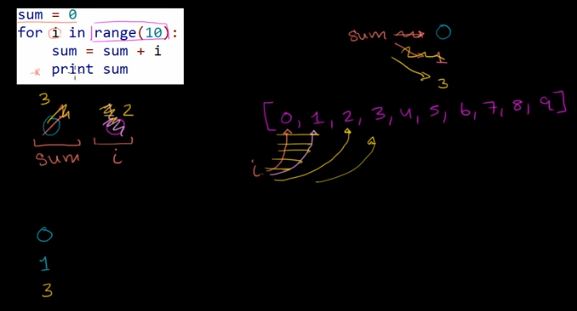 sum = 0
for i in range(10):
    sum = sum + i
    print sum
sum 0
1
3
3 2
sum i
[0, 1, 2, 3, 4, 5, 6, 7, 8, 9]
i
0
1
3